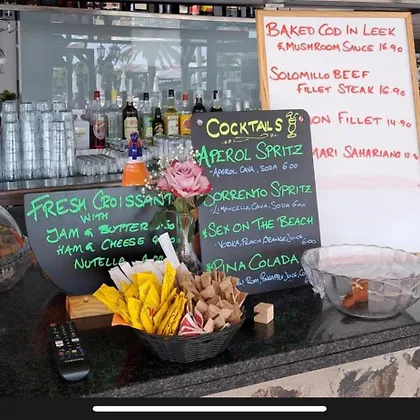 BAKED COD IN LEEK
& MUSHROOM SAUCE 16.90
SOLOMILLO BEEF
FILLET STEAK 16.90
ON FILLET 14.90
MARI SAHARIANO
COCKTAILS
APEROL SPRITZ
- APEROL, CAVA, SODA 6.00
SORRENTO SPRITZ
- LIMONCELLO, CAVA, SODA 6.00
SEX ON THE BEACH
- VODKA, PEACH, ORANGE JUICE 6.00
PINA COLADA
FRESH CROISSANT
WITH
JAM & BUTTER
HAM & CHEESE
NUTELLA